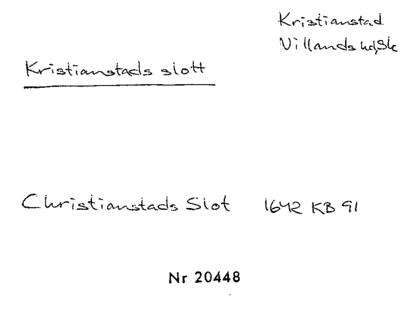 Kristianstad
Villands hd, Sk
Kristianstads slott
Christianstads Slot 1642 KB 91
Nr 20448